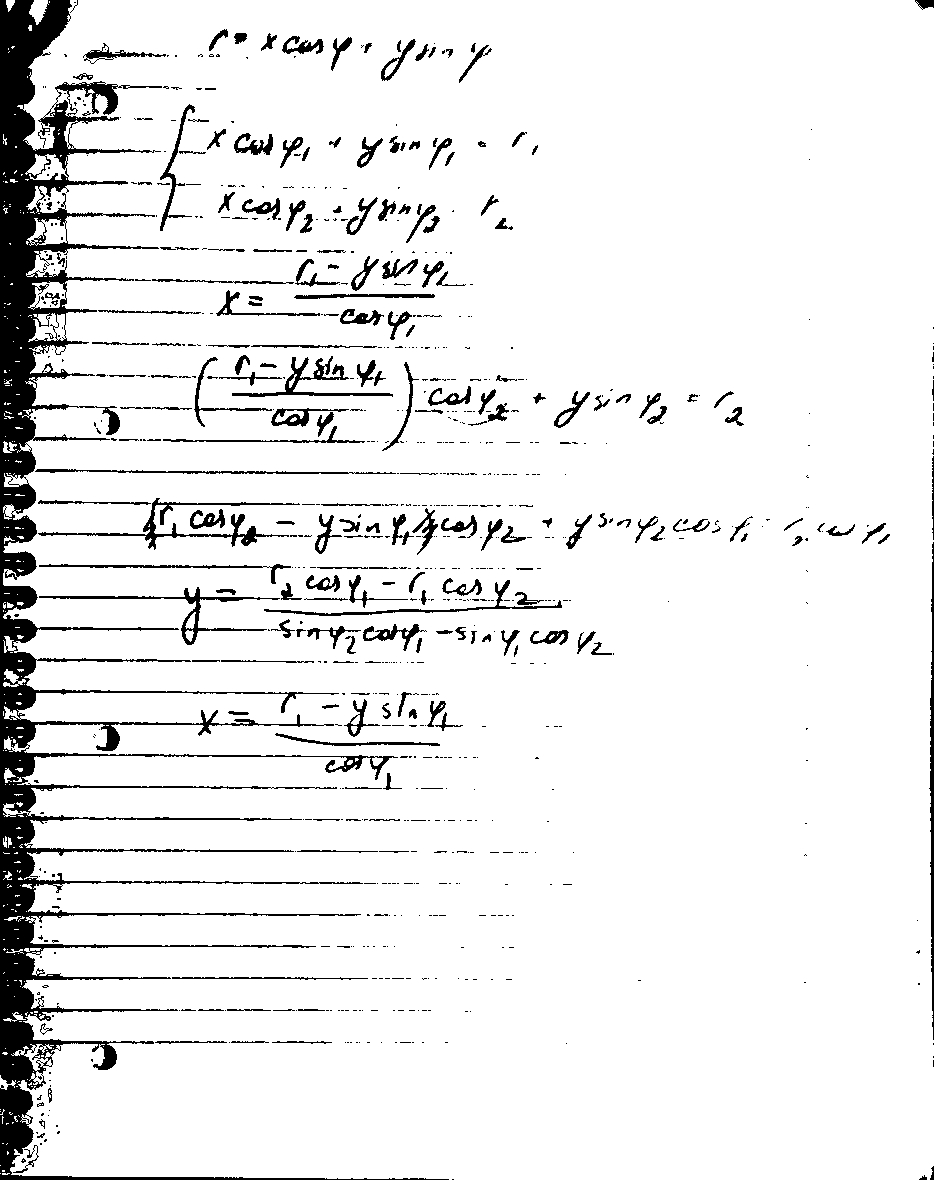 r = x cos φ + y sin φ
x cos φ₁ + y sin φ₁ = r₁
x cos φ₂ + y sin φ₂ = r₂
x = (r₁ - y sin φ₁) / cos φ₁
((r₁ - y sin φ₁) / cos φ₁) cos φ₂ + y sin φ₂ = r₂
r₁ cos φ₂ - y sin φ₁ cos φ₂ + y sin φ₂ cos φ₁ = r₂ cos φ₁
y = (r₂ cos φ₁ - r₁ cos φ₂) / (sin φ₂ cos φ₁ - sin φ₁ cos φ₂)
x = (r₁ - y sin φ₁) / cos φ₁